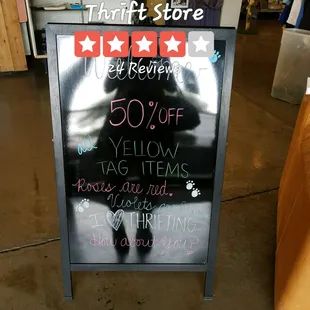 Thrift Store
24 Reviews
50% OFF
YELLOW
TAG ITEMS
Roses are red.
Violets
I THRIFTING
How about you?